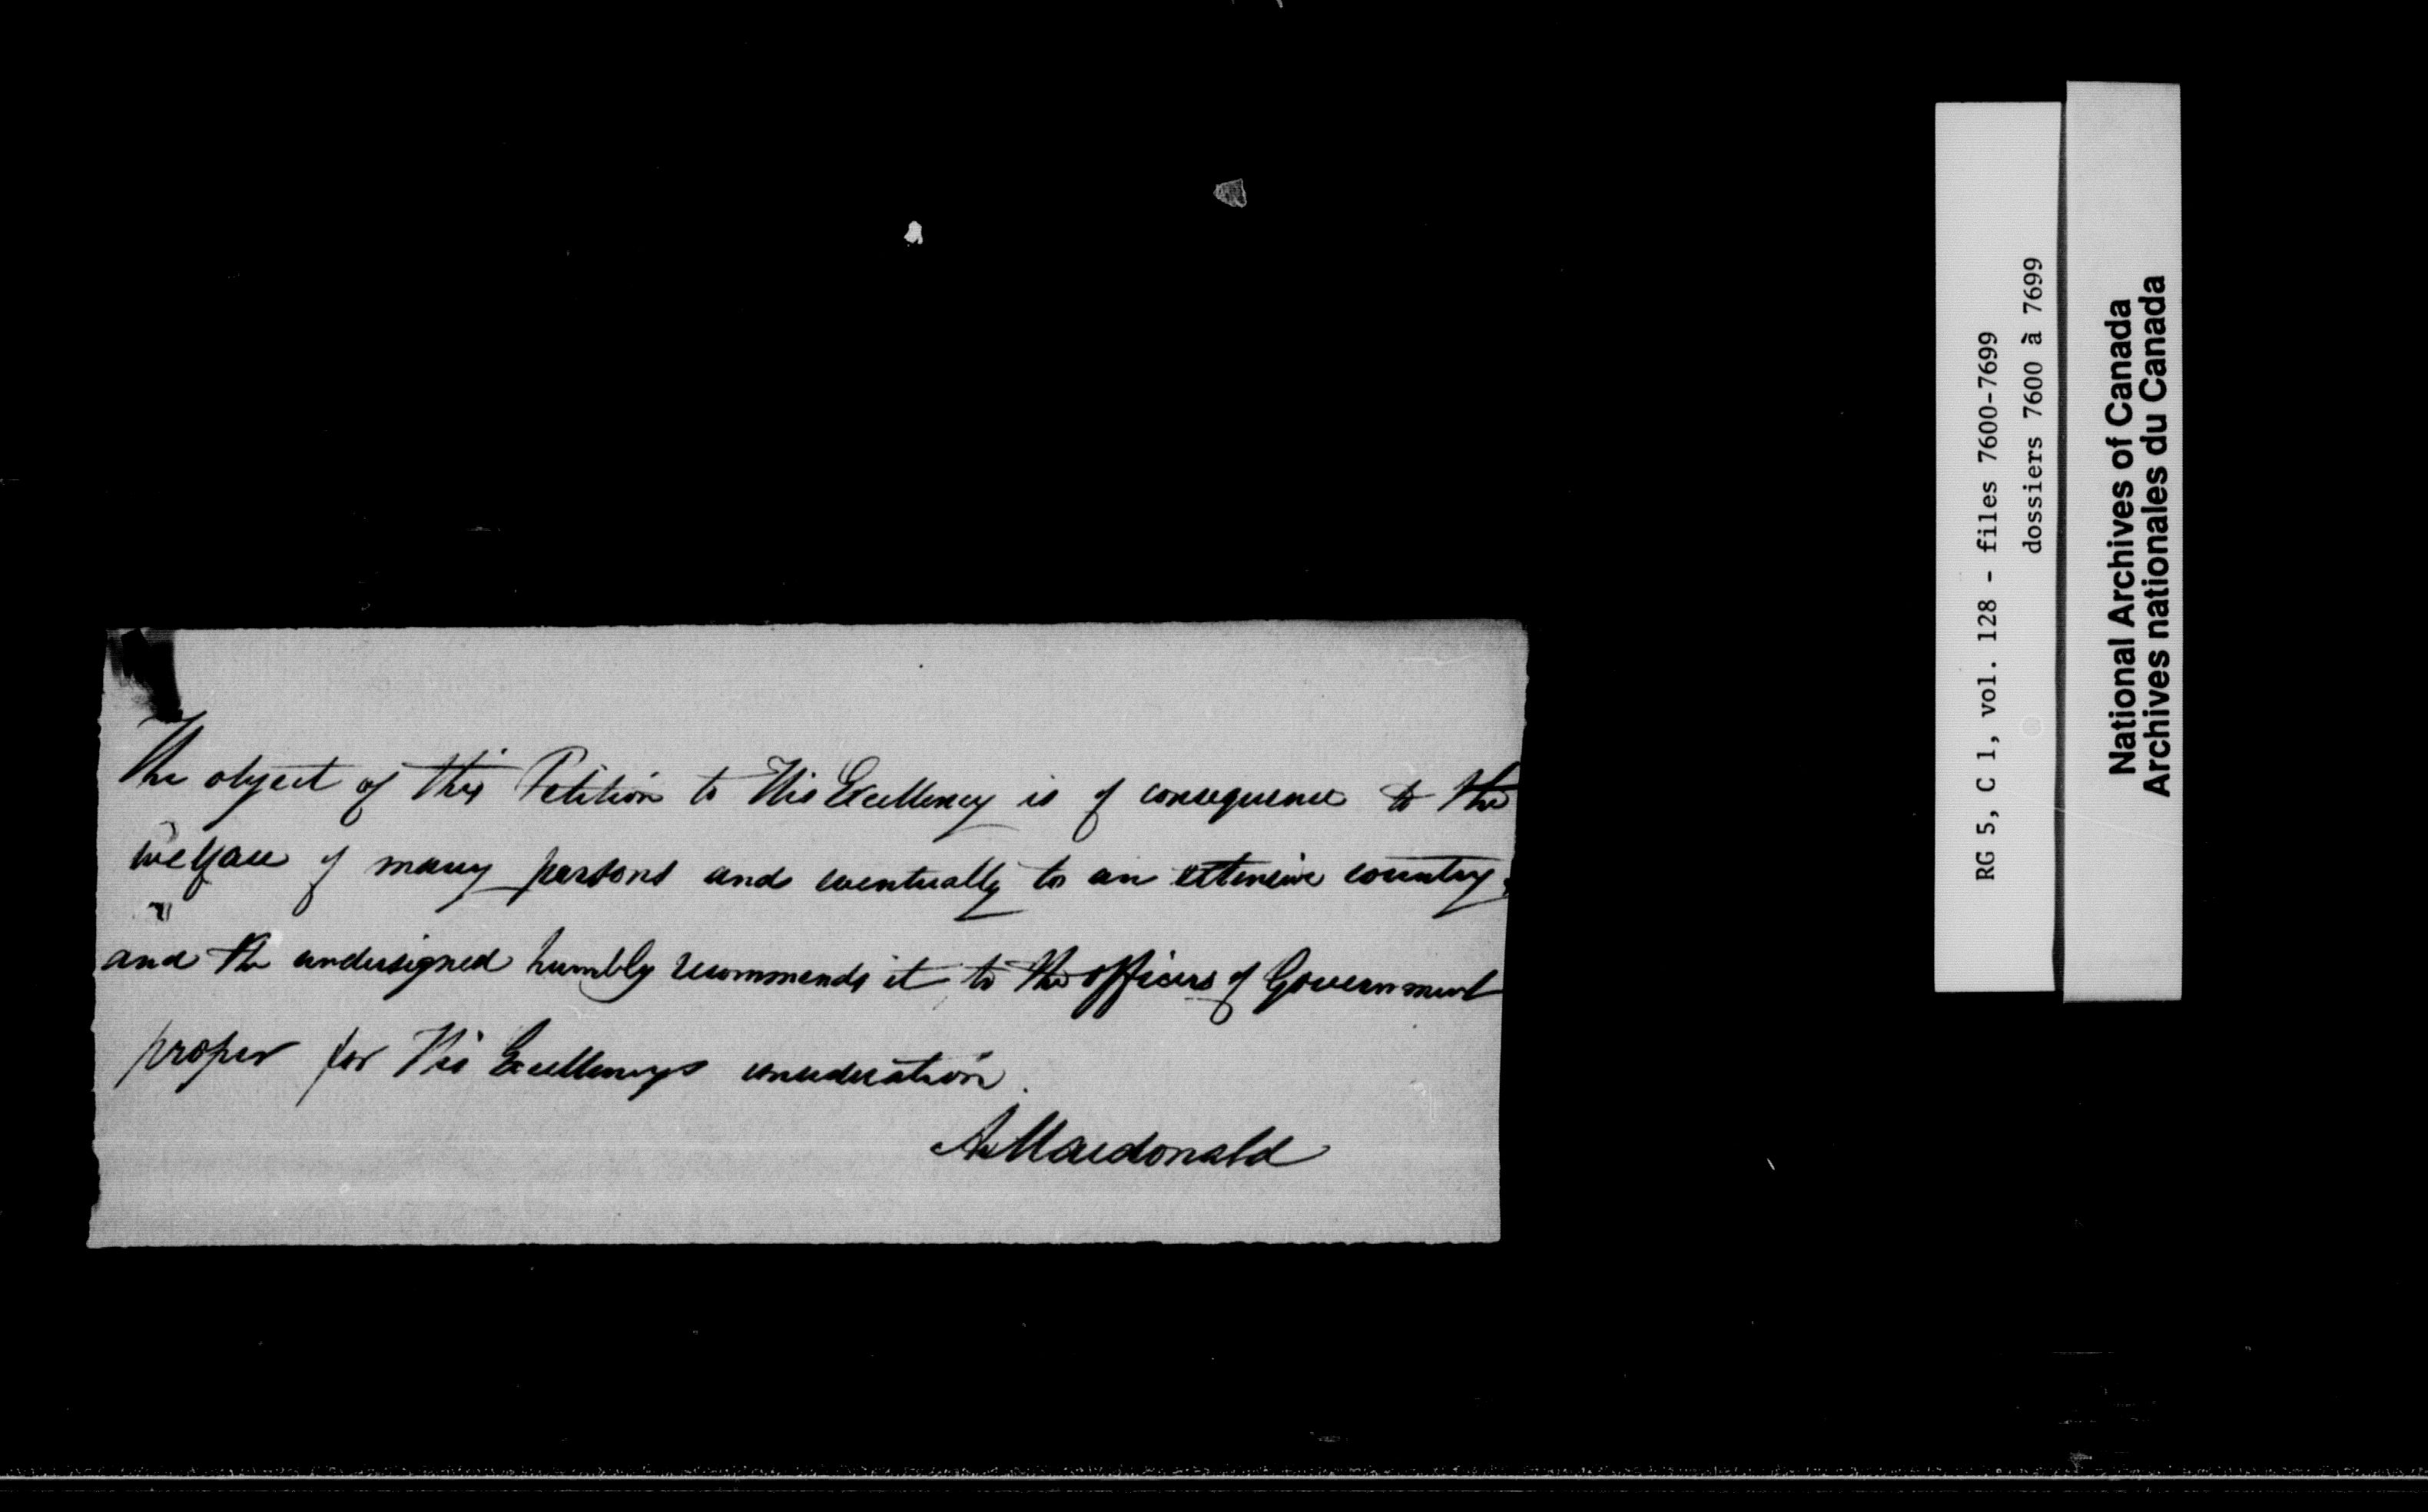 The object of this Petition to His Excellency is of consequence to the
welfare of many persons and eventually to an extensive country,
and the undersigned humbly recommends it to the officers of Government
proper for His Excellencys consideration.
A Macdonald
RG 5, C 1, vol. 128 - files 7600-7699
dossiers 7600 à 7699
National Archives of Canada
Archives nationales du Canada